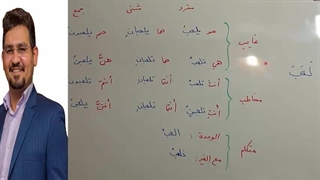 مفرد مثنی جمع
غایب هو یلعبُ هما یلعبانِ هم یلعبونَ
هی تلعبُ هما تلعبانِ هنَّ یلعبنَ
لَعِبَ
مخاطب أنتَ تلعبُ أنتما تلعبانِ أنتم تلعبونَ
أنتِ تلعبینَ أنتما تلعبانِ أنتنَّ تلعبنَ
متکلم الوحدة : ألعبُ
مع الغیر : نلعبُ